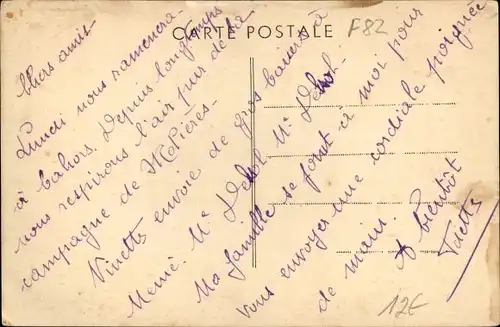 CARTE POSTALE
F82
Chers amis-
Lundi nous ramènera-
à Cahors. Depuis longtemps
nous respirons l'air pur de la
campagne de Molières-
Ninette envoie de gros baisers à
Mémé. Mr Delsol Me Delsol-
Ma famille se joint à moi pour
vous envoyer une cordiale poignée
de main. A bientôt
12€